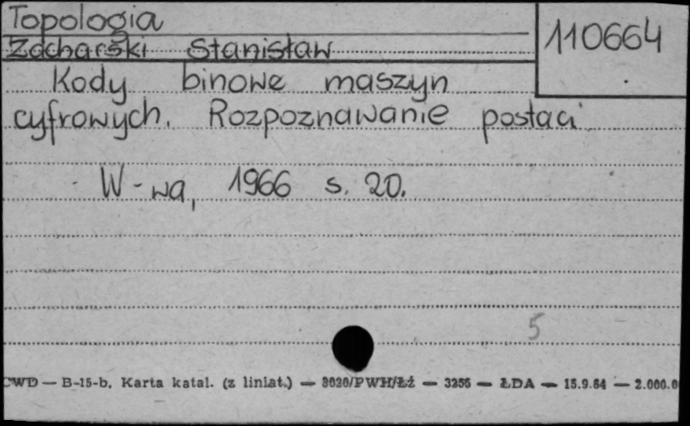 Topologia
110664
Zacharski Stanisław
Kody binowe maszyn
cyfrowych. Rozpoznawanie postaci
W-wa, 1966 s. 20.
5
CWD — B-15-b. Karta katal. (z liniat.) — 3020/PWH/Łź — 3256 — ŁDA — 15.9.64 — 2.000.0